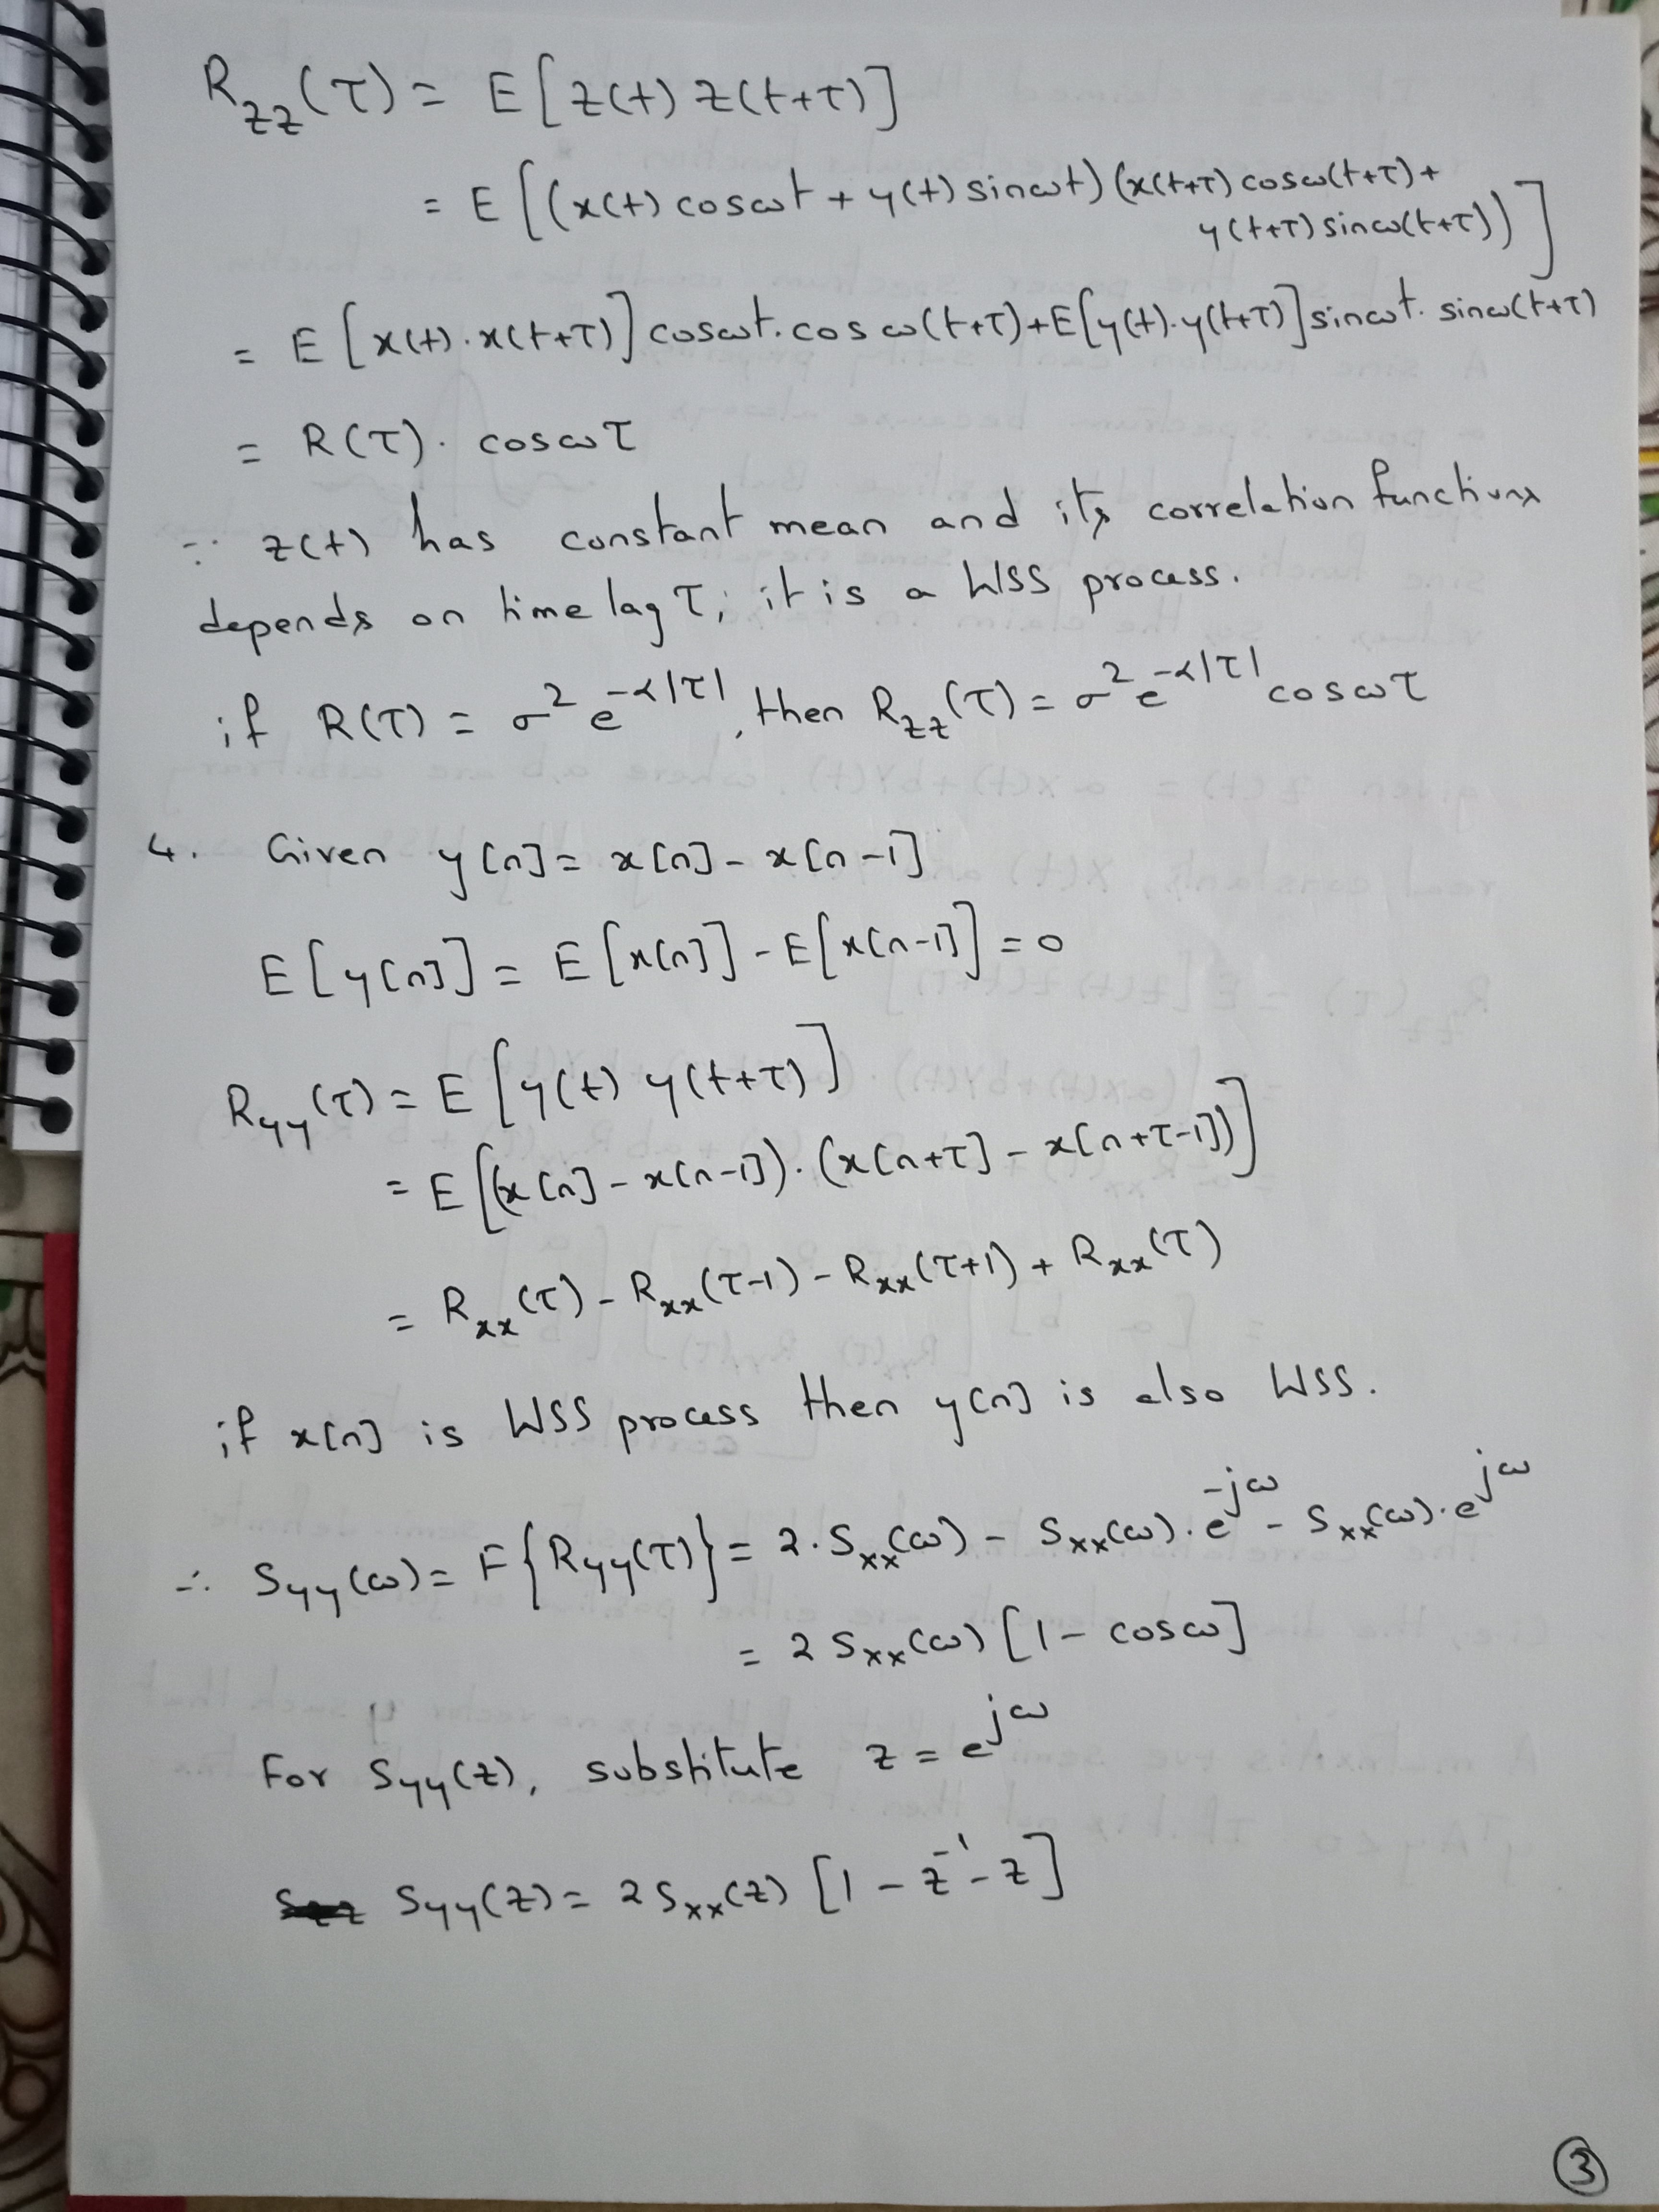 R_zz(τ) = E[z(t) z(t+τ)]
= E[(x(t) cosωt + y(t) sinωt) (x(t+τ) cosω(t+τ) +
y(t+τ) sinω(t+τ))]
= E[x(t)·x(t+τ)] cosωt·cos ω(t+τ) + E[y(t)·y(t+τ)] sinωt· sinω(t+τ)
= R(τ)· cosωτ
∵ z(t) has constant mean and its correlation functions
depends on time lag τ, it is a WSS process.
if R(τ) = σ² e^{-α|τ|}, then R_zz(τ) = σ² e^{-α|τ|} cosωτ
4. Given y[n] = x[n] - x[n-1]
E[y[n]] = E[x[n]] - E[x[n-1]] = 0
R_yy(τ) = E[y(t) y(t+τ)]
= E[(x[n] - x[n-1])·(x[n+τ] - x[n+τ-1])]
= R_xx(τ) - R_xx(τ-1) - R_xx(τ+1) + R_xx(τ)
if x[n] is WSS process then y[n] is also WSS.
∴ S_yy(ω) = F{R_yy(τ)} = 2·S_xx(ω) - S_xx(ω)·e^{-jω} - S_xx(ω)·e^{jω}
= 2 S_xx(ω) [1 - cosω]
For S_yy(z), substitute z = e^{jω}
S_yy(z) = 2 S_xx(z) [1 - z^{-1} - z]
3